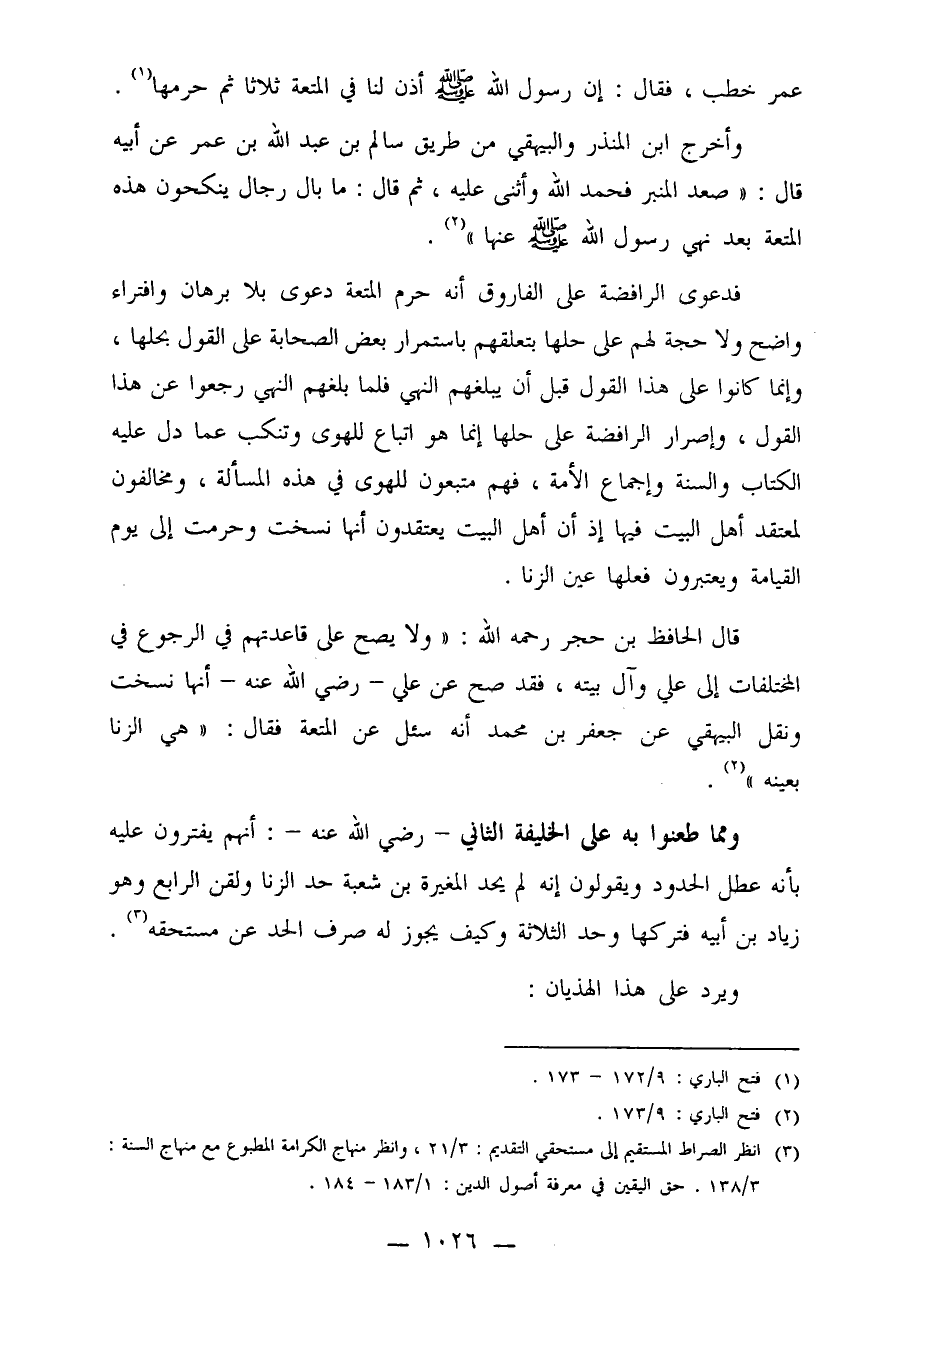 عمر خطب ، فقال : إن رسول الله ﷺ أذن لنا في المتعة ثلاثا ثم حرمها(١) .
وأخرج ابن المنذر والبيهقي من طريق سالم بن عبد الله بن عمر عن أبيه
قال : « صعد المنبر فحمد الله وأثنى عليه ، ثم قال : ما بال رجال ينكحون هذه
المتعة بعد نهي رسول الله ﷺ عنها »(٢) .
فدعوى الرافضة على الفاروق أنه حرم المتعة دعوى بلا برهان وافتراء
واضح ولا حجة لهم على حلها بتعلقهم باستمرار بعض الصحابة على القول بحلها ،
وإنما كانوا على هذا القول قبل أن يبلغهم النهي فلما بلغهم النهي رجعوا عن هذا
القول ، وإصرار الرافضة على حلها إنما هو اتباع للهوى وتنكب عما دل عليه
الكتاب والسنة وإجماع الأمة ، فهم متبعون للهوى في هذه المسألة ، ومخالفون
لمعتقد أهل البيت فيها إذ أن أهل البيت يعتقدون أنها نسخت وحرمت إلى يوم
القيامة ويعتبرون فعلها عين الزنا .
قال الحافظ بن حجر رحمه الله : « ولا يصح على قاعدتهم في الرجوع في
المختلفات إلى علي وآل بيته ، فقد صح عن علي – رضي الله عنه – أنها نسخت
ونقل البيهقي عن جعفر بن محمد أنه سئل عن المتعة فقال : « هي الزنا
بعينه »(٢) .
ومما طعنوا به على الخليفة الثاني – رضي الله عنه – : أنهم يفترون عليه
بأنه عطل الحدود ويقولون إنه لم يحد المغيرة بن شعبة حد الزنا ولقن الرابع وهو
زياد بن أبيه فتركها وحد الثلاثة وكيف يجوز له صرف الحد عن مستحقه(٣) .
ويرد على هذا الهذيان :
(١) فتح الباري : ١٧٢/٩ – ١٧٣ .
(٢) فتح الباري : ١٧٣/٩ .
(٣) انظر الصراط المستقيم إلى مستحقي التقديم : ٢١/٣ ، وانظر منهاج الكرامة المطبوع مع منهاج السنة :
١٣٨/٣ . حق اليقين في معرفة أصول الدين : ١٨٣/١ – ١٨٤ .
— ١٠٢٦ —